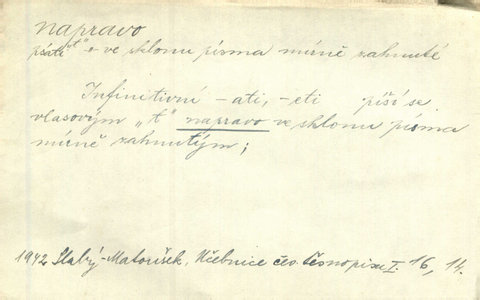 napravo
psáti "t" ve sklonu písma mírně zahnuté
Infinitivní -ati, -eti píší se
vlasovým „t" napravo ve sklonu písma
mírně zahnutým;
1942 Slabý-Matoušek, Učebnice čes. těsnopisu I. 16, 14.